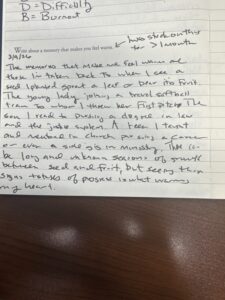 D = Difficulty
B = Burnout
Write about a memory that makes you feel warm.
for > 1 month
3/4/26
The memories that make me feel warm are
those I'm taken back to when I see a
seed I planted sprout a leaf or bear its fruit.
The young lady joining a travel softball
team to whom I threw her first pitch. The
son I read to pursuing a degree in law
and the justice system. A teen I taught
and mentored in church pursuing a career
or even a side gig in ministry. There can
be long and unknown seasons of growth
between seed and fruit, but seeing those
signs of progress is what warms
my heart.